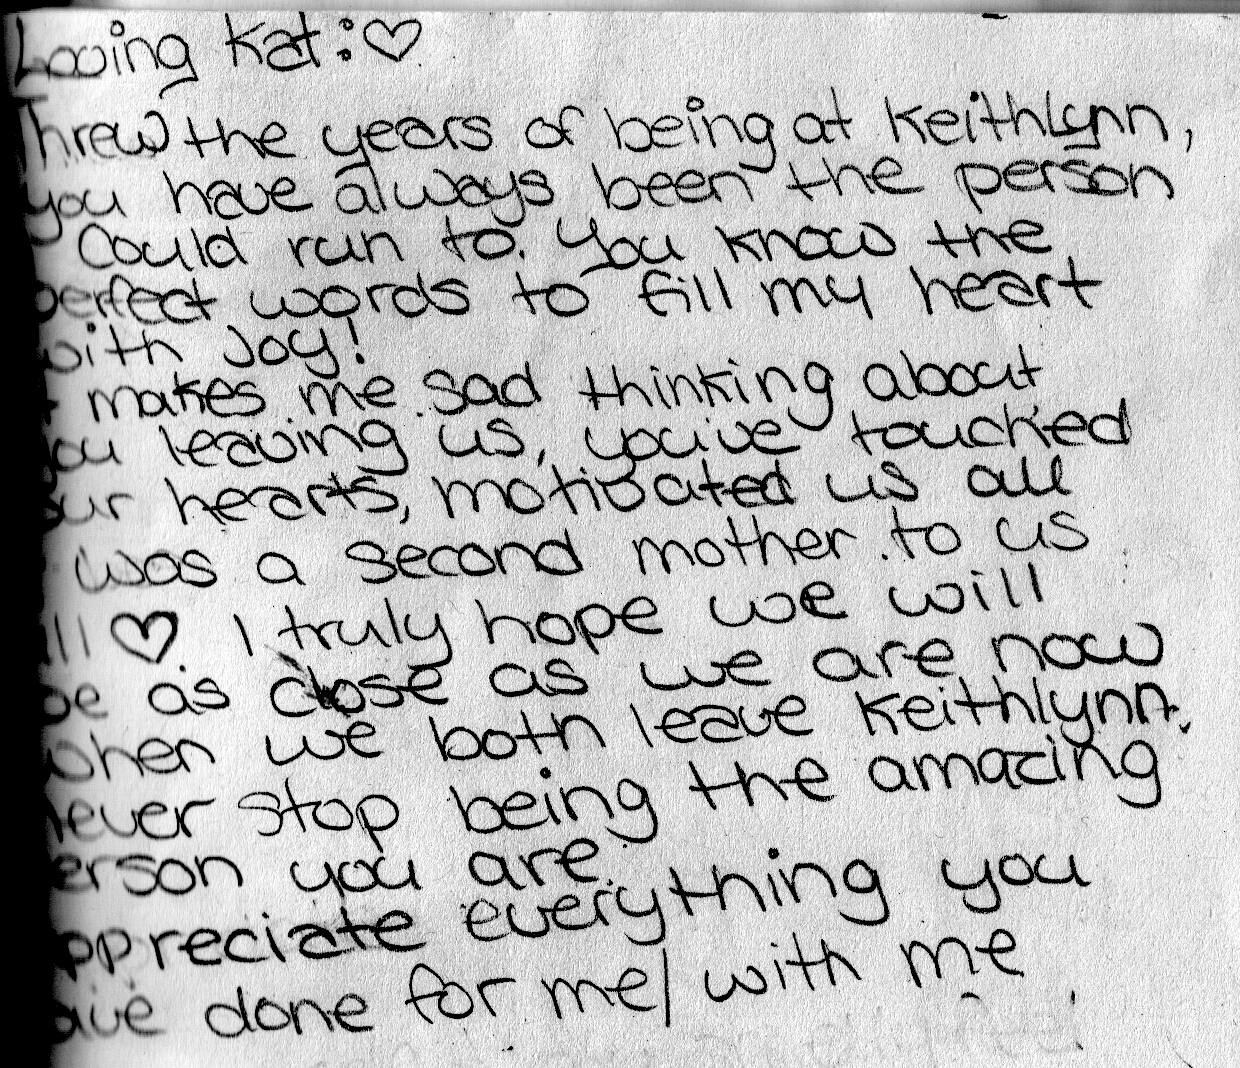 Loving Kat: ♡
Threw the years of being at Keithlynn,
you have always been the person
Could run to. You know the
perfect words to fill my heart
with Joy!
makes me sad thinking about
you leaving us, you've touched
our hearts, motivated us all
was a second mother to us
all ♡ I truly hope we will
be as close as we are now
when we both leave Keithlynn.
never stop being the amazing
person you are.
appreciate everything you
have done for me/with me